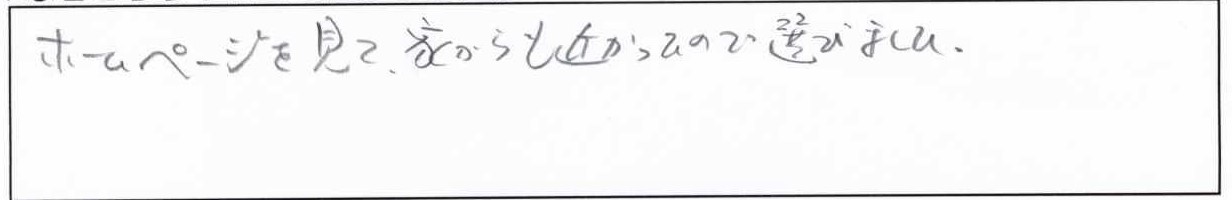 ホームページを見て、家からも近かったので選びました.